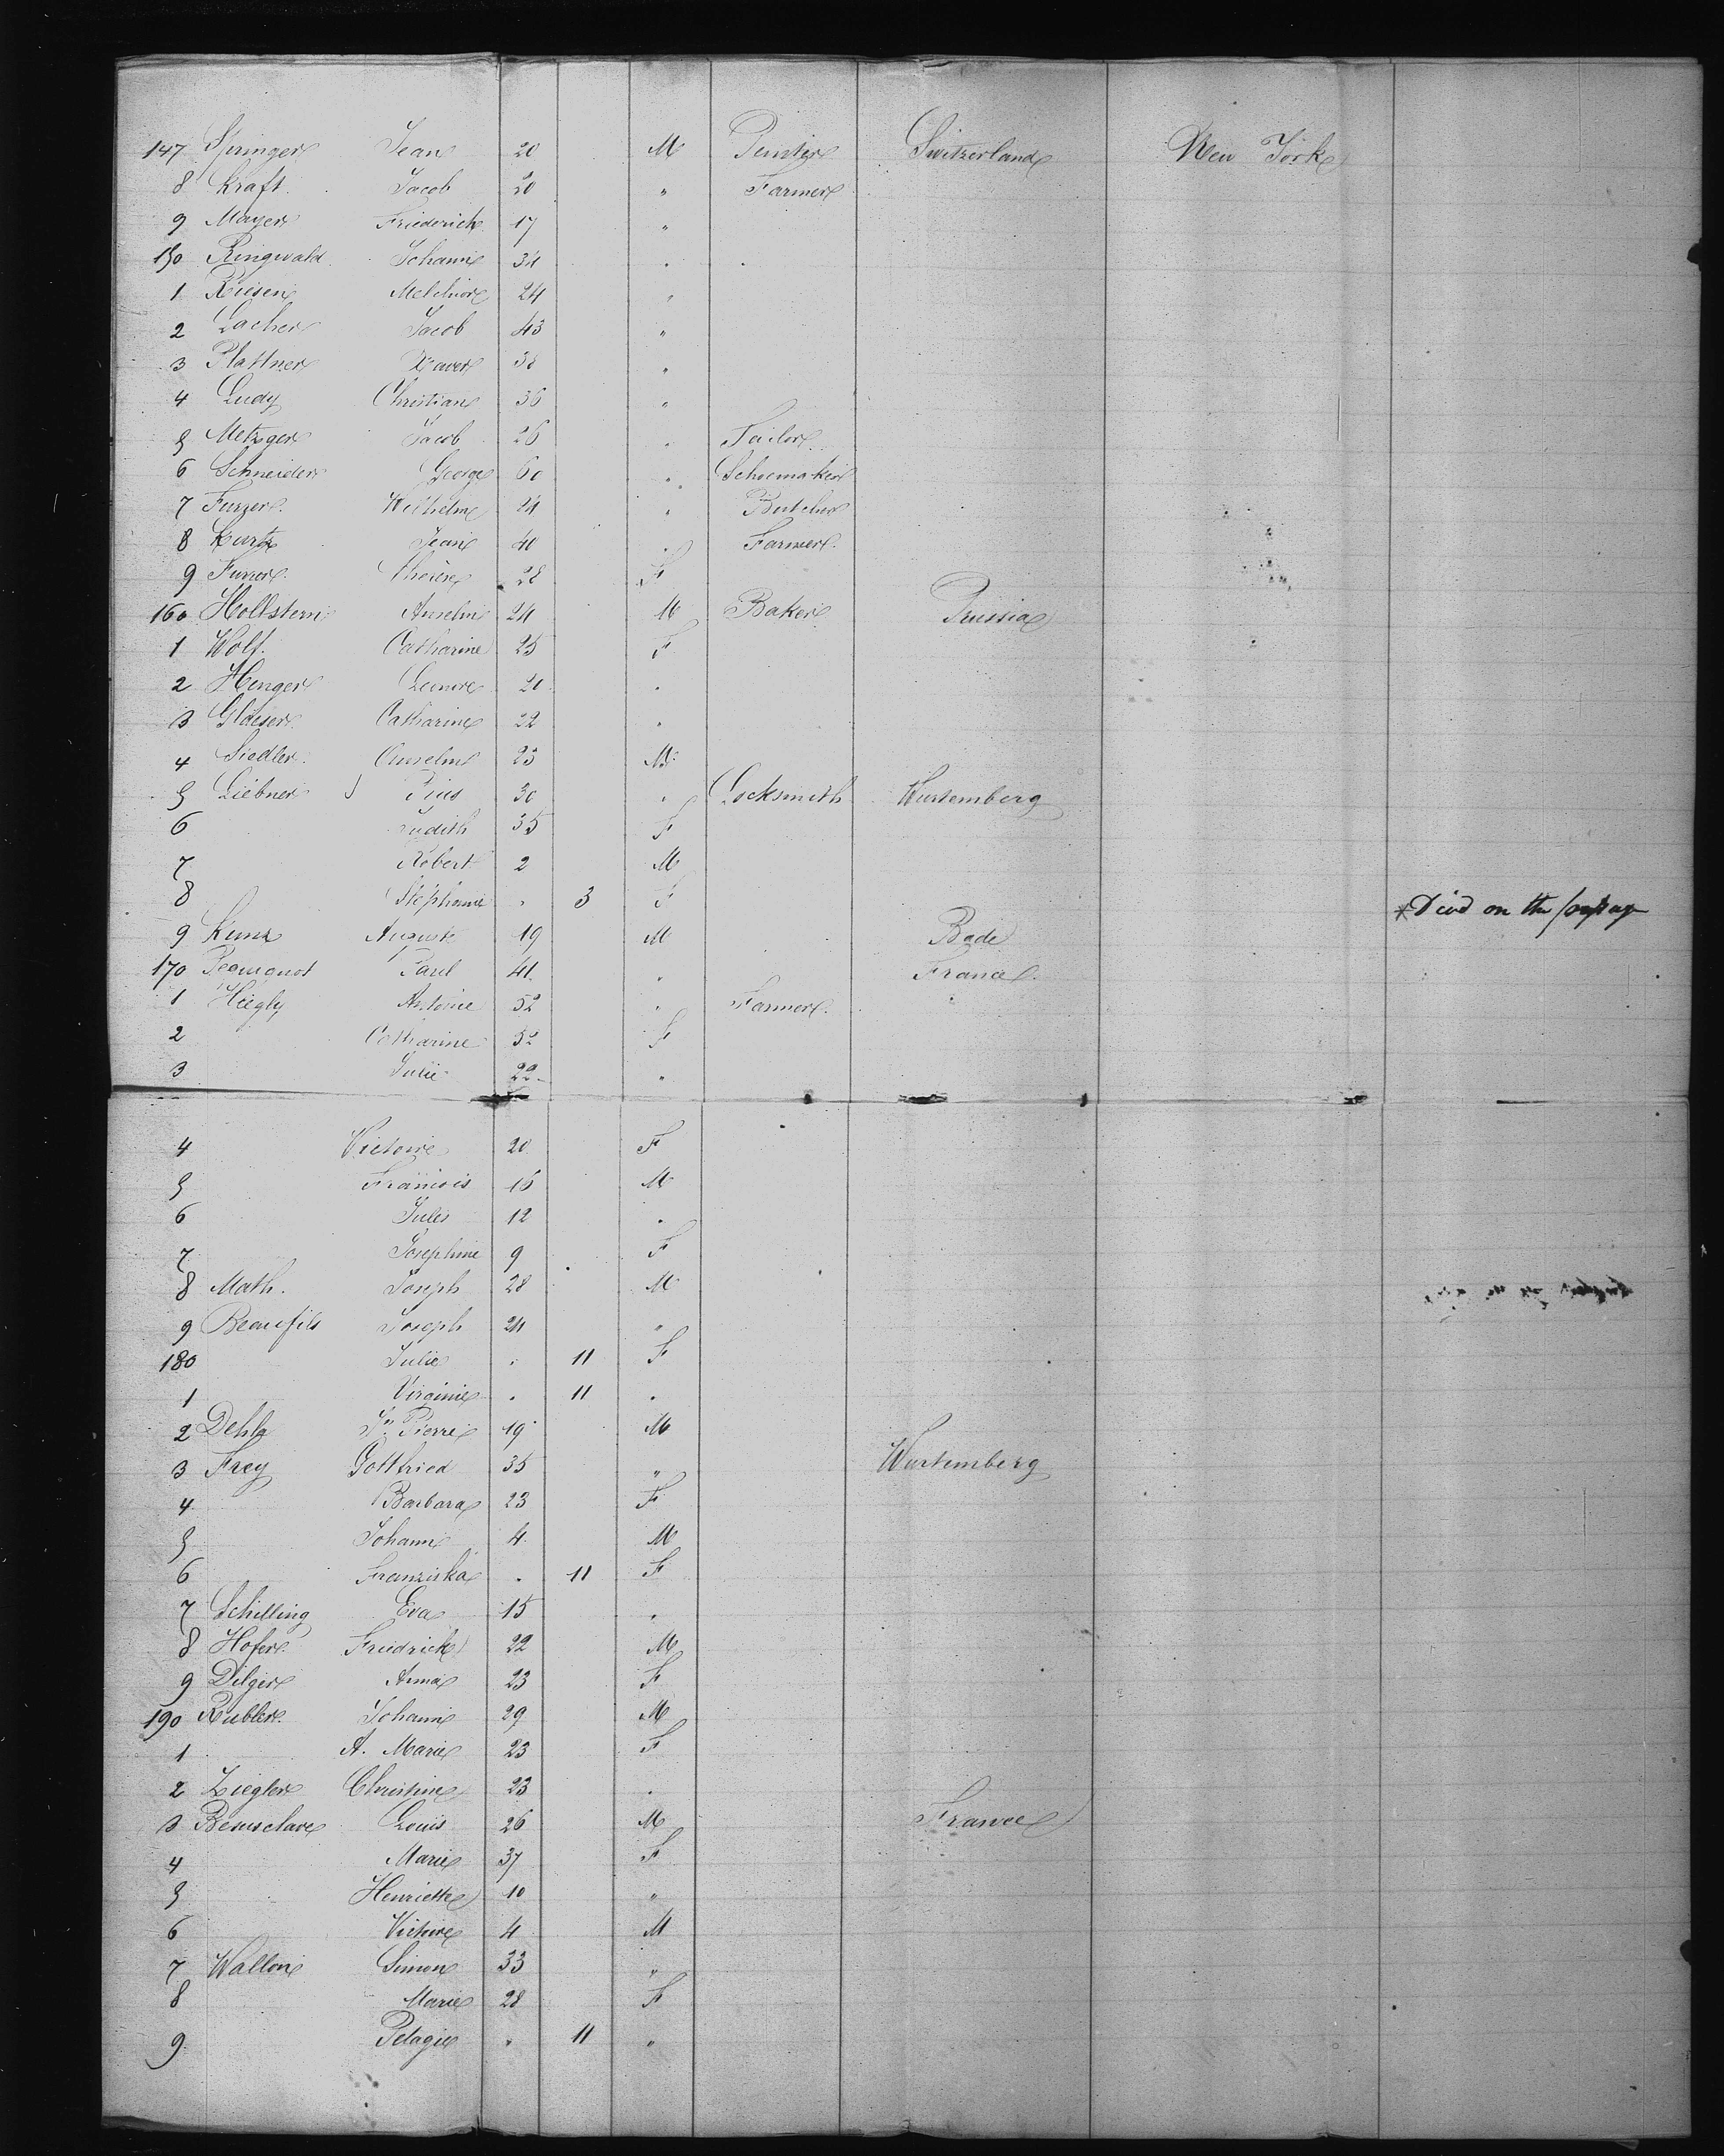 147 Springer Jean 20 M Peinter Switzerland New York
8 Kraft Jacob 20 " Farmer
9 Mayer Friederich 17 "
150 Ringwald Johann 34 "
1 Riesen Melchior 24 "
2 Lacher Jacob 43 "
3 Plattner Xaver 38 "
4 Ludy Christian 36 "
5 Metzger Jacob 26 " Tailor
6 Schneider George 60 " Schoemaker
7 Furrer Wilhelm 24 " Butcher
8 Kurtz Jean 40 " Farmer
9 Furrer Therese 28 F
160 Hollstern Anselm 24 M Baker Prussia
1 Wolf Catharine 25 F
2 Henger Leonore 20 "
3 Glaeser Catharine 22 "
4 Siedler Anselm 23 M
5 Liebner Pius 30 " Locksmith Wurtemberg
6 Judith 35 F
7 Robert 2 M
8 Stephanie " 3 F *Died on the passage
9 Kunz August 19 M Bade
170 Paul 41 " France
1 Hiegly Antoine 52 " Farmer
2 Catharine 52 F
3 Julie 22 "
4 Victoire 20 F
5 Francois 16 M
6 Jules 12 "
7 Josephine 9 F
8 Math. Joseph 28 M
9 Beaufils Joseph 24 "
180 Julie " 11 F
1 Virginie " 11 "
2 Jn Pierre 19 M
3 Frey Gottfried 35 " Wurtemberg
4 Barbara 23 F
5 Johann 4 M
6 Franziska " 11 F
7 Schilling Eva 15 "
8 Hofer Friedrich 22 M
9 Dilger Anna 23 F
190 Rubler Johann 29 M
1 A. Marie 23 F
2 Ziegler Christine 23 "
3 Louis 26 M France
4 Marie 37 F
5 Henriette 10 "
6 Victore 4 M
7 Wallon Simon 33 "
8 Marie 28 F
9 Pelagie " 11 "